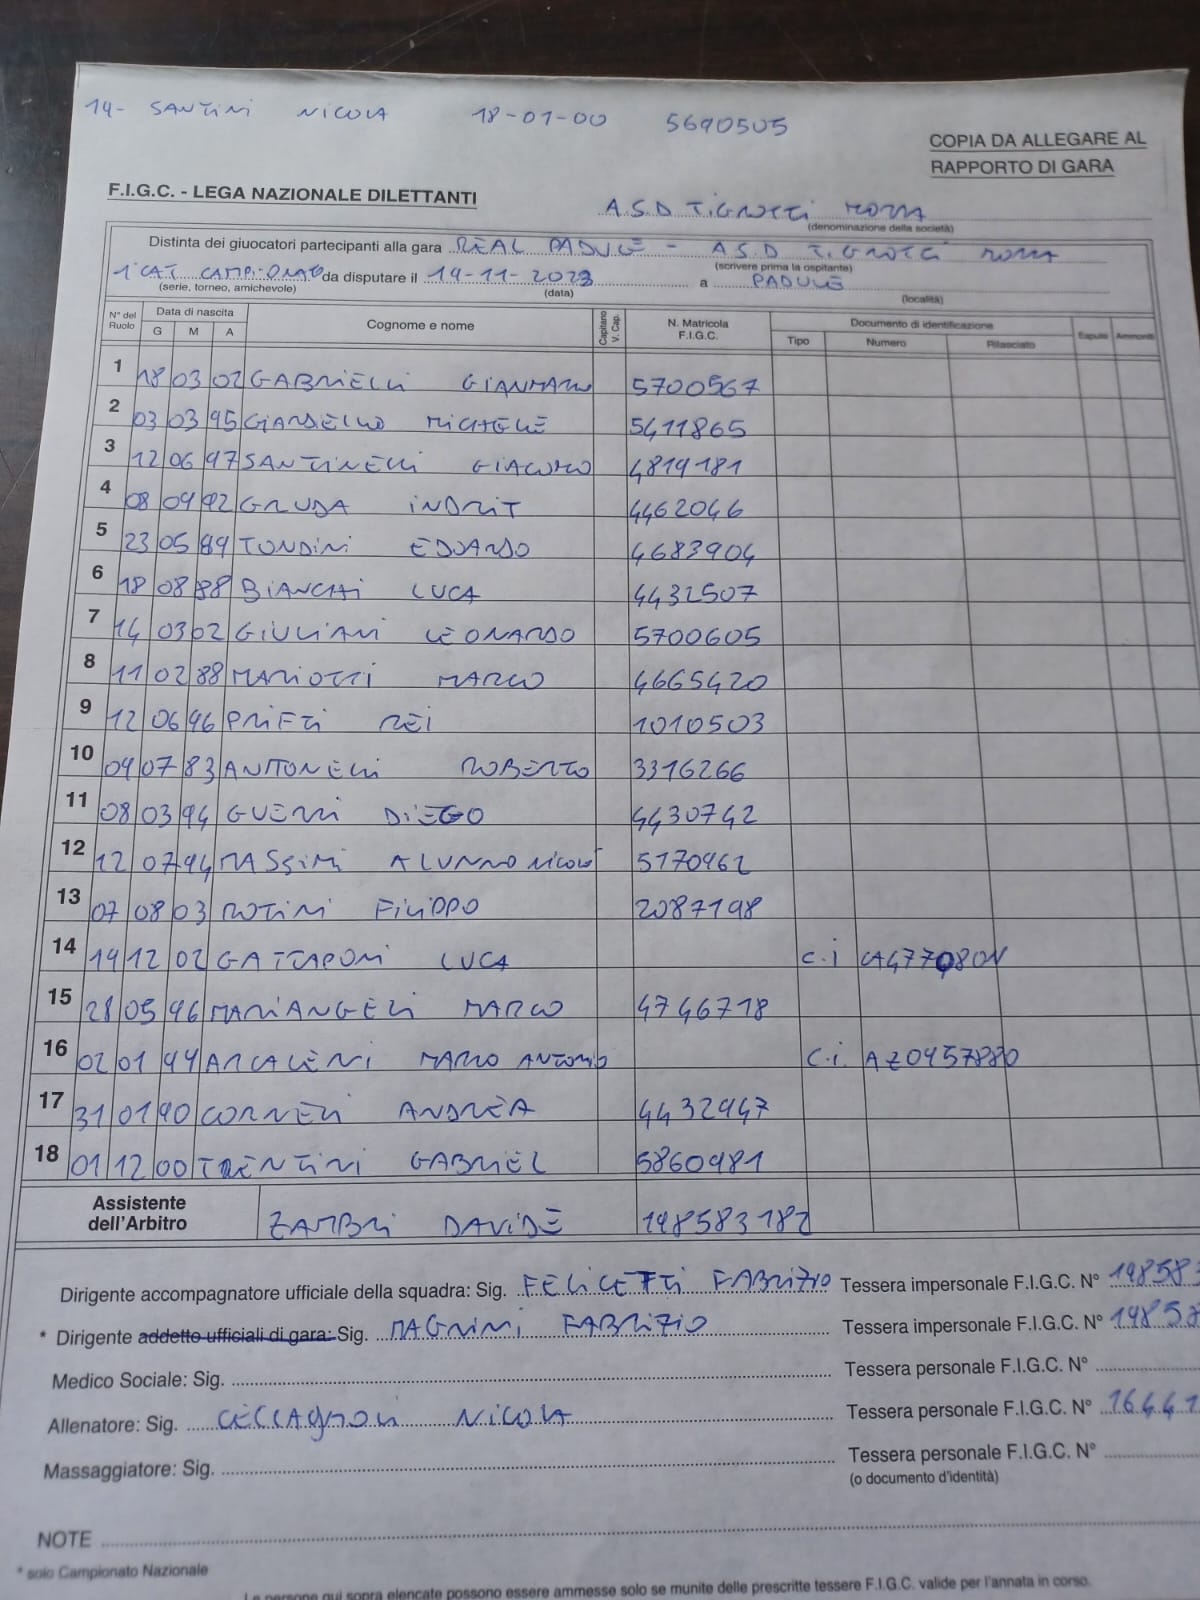 14- SANTINI NICOLA 18-01-00 5690505
COPIA DA ALLEGARE AL
RAPPORTO DI GARA
F.I.G.C. - LEGA NAZIONALE DILETTANTI
A.S.D TIGROTTI MORRA
(denominazione della società)
Distinta dei giuocatori partecipanti alla gara REAL PADULE - A.S.D TIGROTTI MORRA
(scrivere prima la ospitante)
1° CAT CAMPIONATO da disputare il 19-11-2023 a PADULE
(serie, torneo, amichevole) (data) (località)
N° del Ruolo Data di nascita G M A Cognome e nome Capitano V. Cap. N. Matricola F.I.G.C. Documento di identificazione Tipo Numero Rilasciato Espulsi Ammoniti
1 18 03 02 GABRIELLI GIANMARCO 5700567
2 03 03 95 GIARDELLO MICHELE 5411865
3 12 06 97 SANTINELLI GIACOMO 4819181
4 08 09 92 GRUDA INDRIT 4462046
5 23 05 89 TONDINI EDOARDO 4683904
6 18 08 88 BIANCHI LUCA 4432507
7 14 03 02 GIULIANI LEONARDO 5700605
8 11 02 88 MARIOTTI MARCO 4665420
9 12 06 96 PRIFTI REI 1010503
10 09 07 83 ANTONELLI ROBERTO 3316266
11 08 03 94 GUERRI DIEGO 4430742
12 12 07 94 MASSIMI ALUNNO NICOLO' 5170962
13 07 08 03 ROTINI FILIPPO 2087198
14 19 12 02 GATTAPONI LUCA C.i CA47708ON
15 28 05 96 MARIANGELI MARCO 4746718
16 02 01 94 ARCALENI MARCO ANTONIO C.i. AZ0457880
17 31 01 90 CORNELI ANDREA 4432947
18 01 12 00 TRENTINI GABRIEL 5860981
Assistente dell'Arbitro ZAMBRI DAVIDE 198583182
Dirigente accompagnatore ufficiale della squadra: Sig. FELICETTI FABRIZIO Tessera impersonale F.I.G.C. N° 19858
* Dirigente addetto ufficiali di gara: Sig. MAGRINI FABRIZIO Tessera impersonale F.I.G.C. N° 1985
Medico Sociale: Sig. Tessera personale F.I.G.C. N°
Allenatore: Sig. CECCAGNOLI NICOLA Tessera personale F.I.G.C. N° 16441
Massaggiatore: Sig. Tessera personale F.I.G.C. N°
(o documento d'identità)
NOTE
* solo Campionato Nazionale
Le persone qui sopra elencate possono essere ammesse solo se munite delle prescritte tessere F.I.G.C. valide per l'annata in corso.